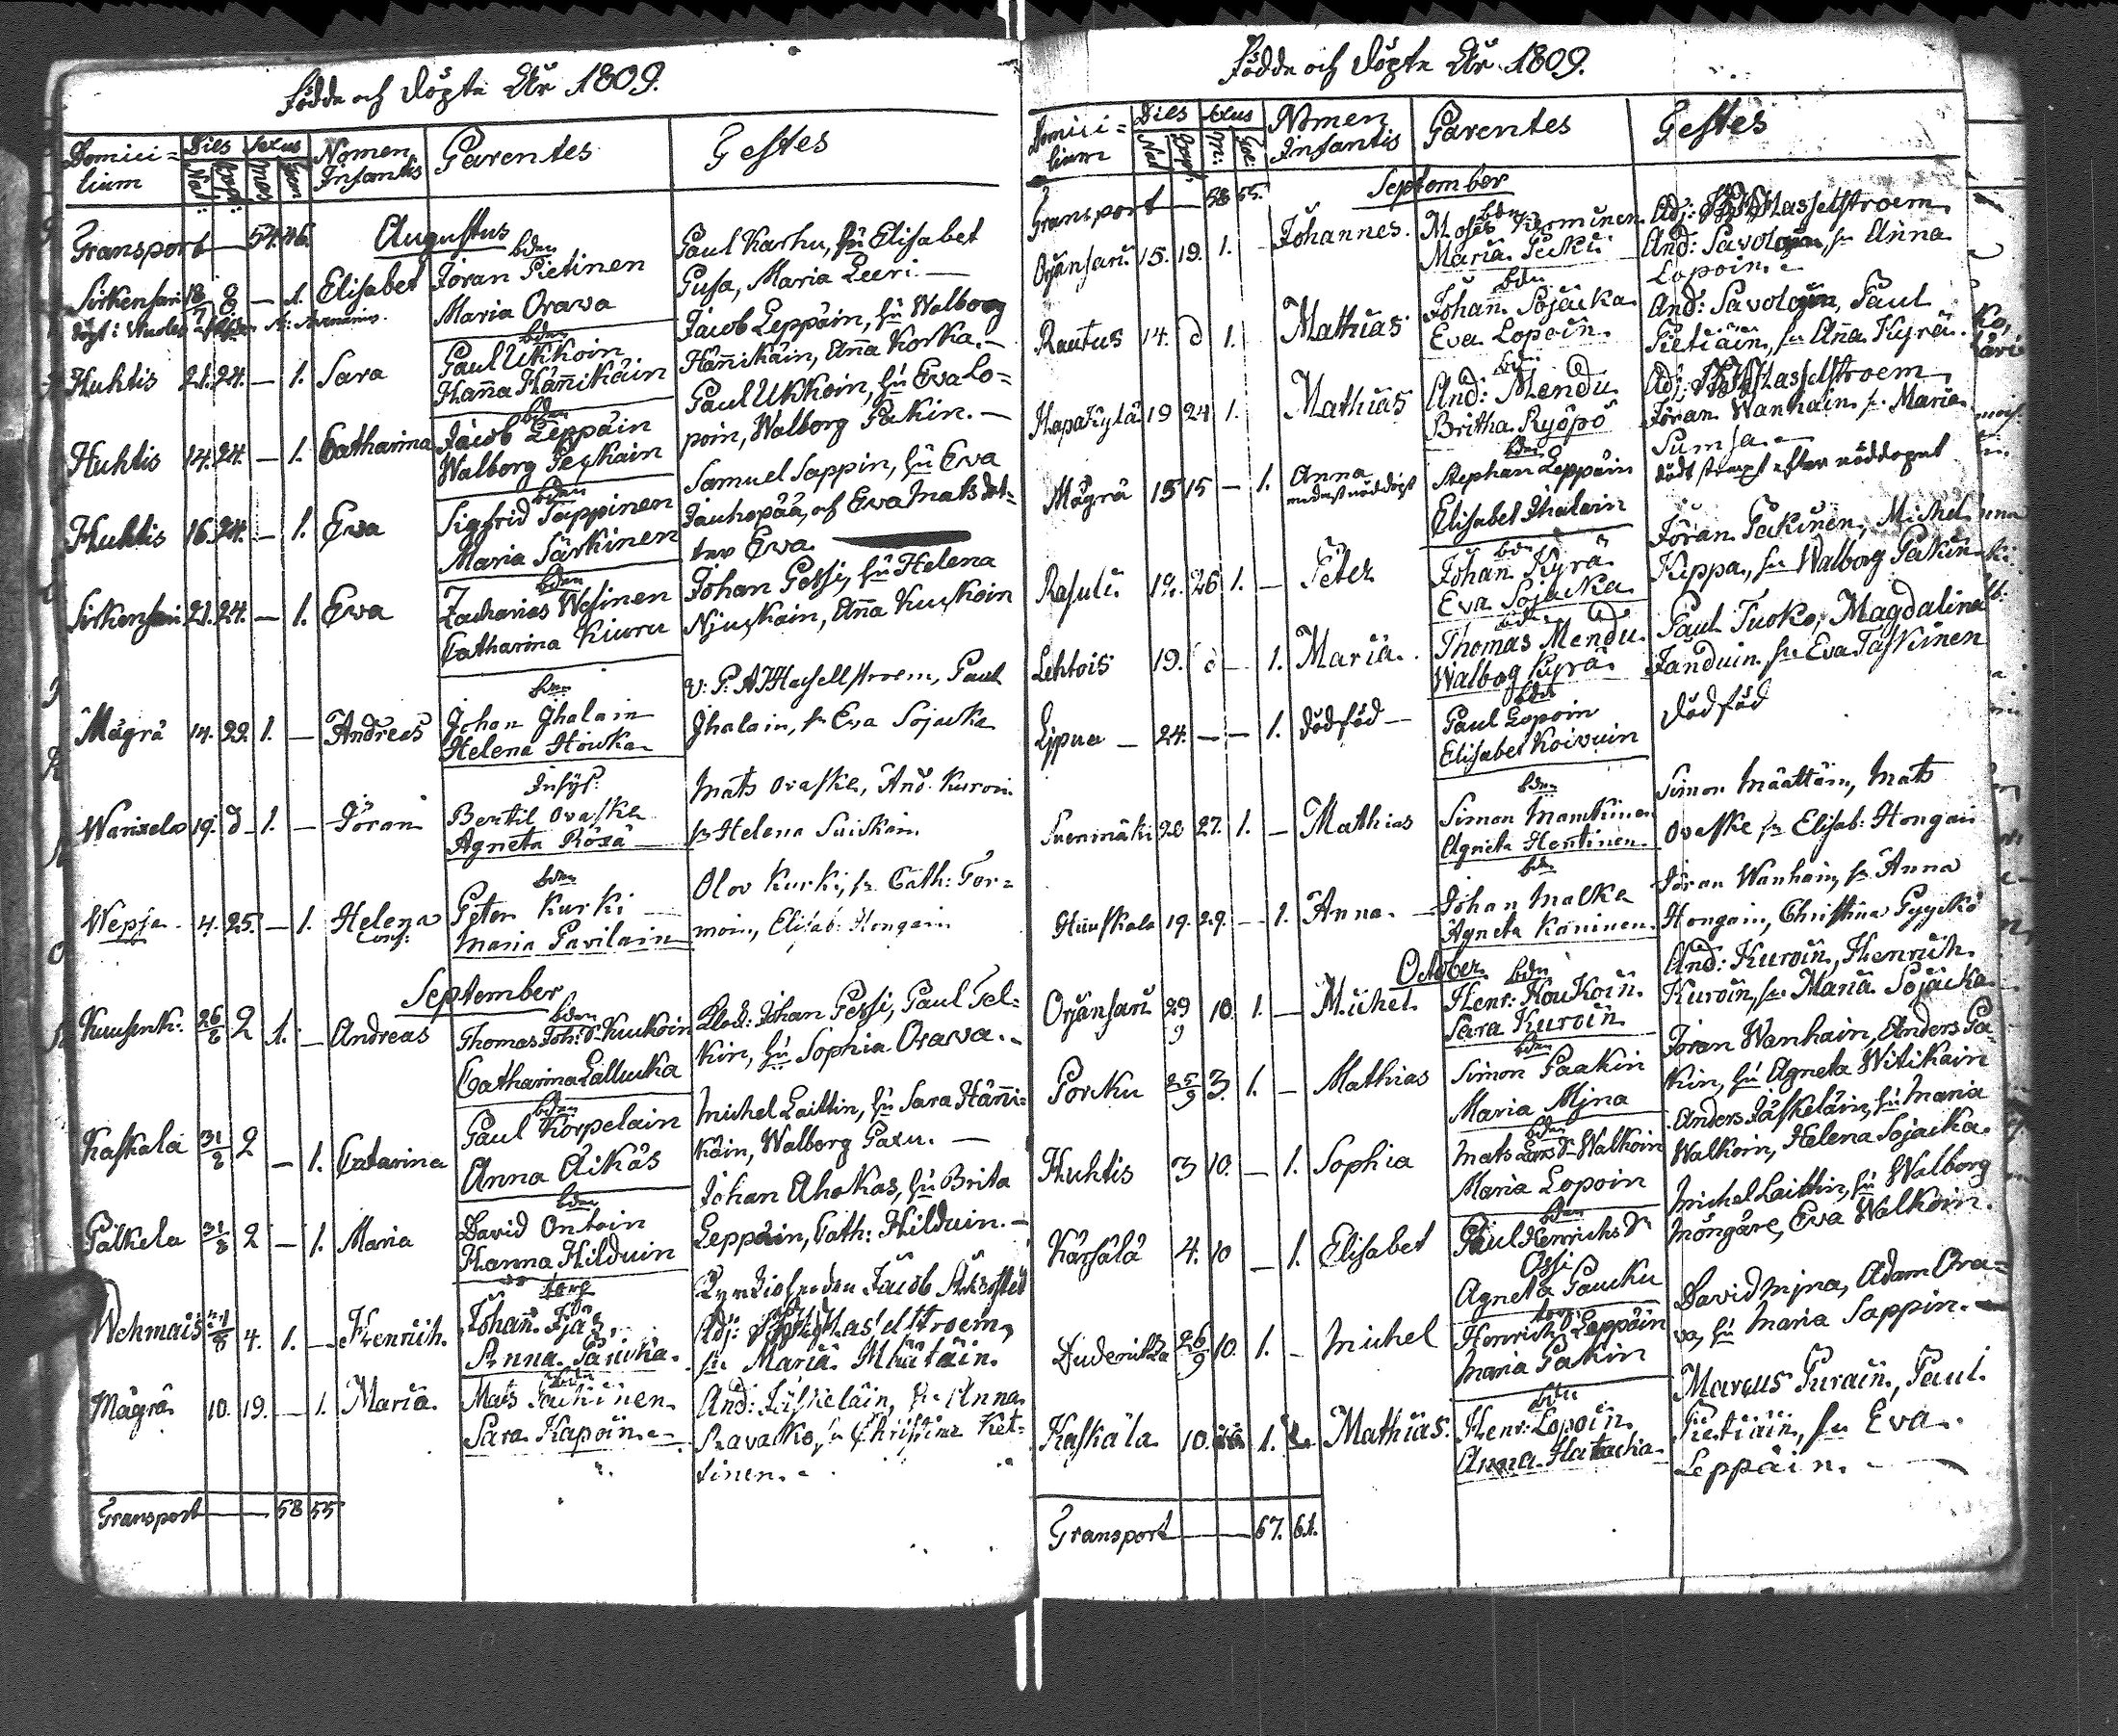 Födde och döpte År 1809.
Domicilium Dies Nat: Bapt: Sexus Mas: Foem: Nomen Infantis Parentes Testes
Transport — 54. 46.
Augustus
Sirkensari 18/7 8 — 1. Elisabet
bdn
Jöran Pietinen
Maria Orava
Paul Karhu, hu Elisabet
Pusa, Maria Leeri. —
Huhtis 21. 24. — 1. Sara
bdn
Paul Ukkoin
Hanna Hännikäin
Jacob Leppäin, hu Walborg
Hännikäin, Anna Korka. —
Huhtis 14. 24. — 1. Catharina
bdn
Jacob Leppäin
Walborg Peskain
Paul Ukkoin, hu Eva Lo=
poin, Walborg Pakin. —
Huhtis 16. 24. — 1. Ewa
bdn
Sigfrid Tappinen
Maria Särkinen
Samuel Sappin, hu Ewa
Jauhopää, of Ewa Matsdot=
ter Ewa.
Sirkensari 21. 24. — 1. Ewa
bdn
Zacharias Wesinen
Catharina Kiuru
Johan Pessi, hu Helena
Njuskain, Anna Kuskoin
Mägrä 14. 22. 1. — Andreas
bdn
Johan Ihalain
Helena Houka
V: P: A J Hasselstroem, Paul
Ihalain, hr Eva Sojacka
Wanzelo 19. d 1. — Jöran
Inhys:
Bertil Ovaska
Agneta Röxä
Mats Ovaska, And: Kuroin
hr Helena Suiskin.
Wepsa 4. 25. — 1. Helena
bdn
Peter Kurki
Maria Pavilain
Olov Kurki, hr Cath: Tor=
moin, Elisab: Hongain
September
Kuusenk: 26/8 2 1. — Andreas
bdn
Thomas Joh: S Kuukoin
Catharina Lallucka
Klock: Johan Pessi, Paul Pel=
kin, hu Sophia Orava. —
Kaskala 31/8 2 — 1. Catarina
bdn
Paul Korpelain
Anna Äikäs
Michel Laittin, hu Sara Hänni=
käin, Walborg Paxu. —
Palkela 31/8 2 — 1. Maria
bdn
David Ontoin
Hanna Hilduin
Johan Ahokas, hu Brita
Leppäin, Cath: Hilduin. —
Wehmais 4. 1. — Henrich.
torp
Johan Fjäs
Anna
Adj: Hasselstroem,
hr Maria
Mägrä 10. 19. — 1. Maria.
bdn
Mats
Sara Kapoin.
And: Jäskeläin, hr Anna
Ravatko, hr Christina Ket=
tinen.
Transport — 58 55
Födde och döpte År 1809.
Domicilium Dies Nat: Bapt: Sexus M: Foe: Nomen Infantis Parentes Testes
Transport — 58 55.
September
Orjänsari 15. 19. 1. — Johannes.
bdn
Moses Kierminen
Maria Pecki
Adj: Hasselstroem
And: Savolain hr Anna
Lopoin.
Rautus 14. d 1. Mathias
bdn
Johan Sojacka
Eva Lopoin.
And: Savolain, Paul
Pietiäin, hr Anna Kyrä.
Hapakylä 19 24 1. Mathias
bdn
And: Mendu
Britha Ryöpö
Adj: Hasselstroem
Jöran Wanhain hr Maria
Sumsa.
Mägrä 15 15 — 1. Anna
bdn
Stephan Leppäin
Elisabet Ihalain
död straxt efter nöddopet
Rasuli 26 1. — Peter
bdn
Johan Kyrä
Eva Sojacka
Jöran Pakinen, Michel
Kippa, hr Walborg Pakin
Lehtois 19. d — 1. Maria.
bdn
Thomas Mendu
Walbog Kyrä
Paul Tuoko, Magdalina
Janduin hr Eva Taskinen
Lipua — 24. — — 1. dödföd —
bdn
Paul Lopoin
Elisabet Koivuin
dödföd
Suenmäki 20 27. 1. — Mathias
bdn
Simon
Agneta Hentinen
Simon Määttäin, Mats
Ovaska hr Elisab: Hongain
Huuskala 19. 29. — 1. Anna. —
bdn
Johan Malka
Agneta Kaninen.
Jöran Wanhain, hr Anna
Hongain, Christina Pyyckö
October
Orjänsari 29/9 10. 1. — Michel.
bdn
Henr: Koukoin.
Sara Kuroin
And: Kuroin, Henrich
Kuroin, hr Maria Sojacka.
Porcku 25/9 3. 1. — Mathias
bdn
Simon Paakin
Maria Mjna
Jöran Wanhain, Anders Pa=
kin, hu Agneta Witikain
Huhtis 3 10. — 1. Sophia
bdn
Mats Lars S Walkoin
Maria Lopoin
Anders Jäskeläin, hu Maria
Walkoin, Helena Sojacka.
Kärsälä 4. 10 — 1. Elisabet
bdn
Paul Henrichs S
Ossi
Agneta Paucku
Michel Laittin, hu Walborg
Möngäre, Eva Walkoin.
26/9 10. 1. — Michel
torp:
Henrich Leppäin
Maria Pakin
David Mjna, Adam Ora=
va, hu Maria Sappin. —
Kaskala 10. 1. Mathias.
bdn
Henr: Lopoin.
Anna Hatacka
Marcus Purain, Paul
Pietiäin, hr Eva
Leppäin. —
Transport — 67. 61.